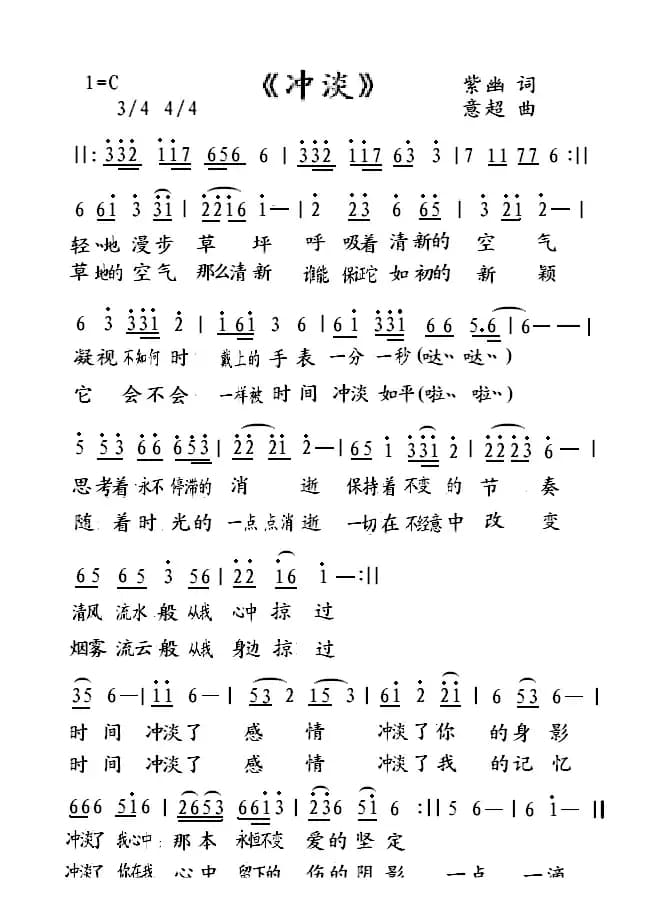 1=C 《冲淡》 紫幽 词
3/4 4/4 意超 曲
||: 332 117 656 6 | 332 117 63 3 | 7 11 77 6 :||
6 61 3 31 | 2216 1— | 2 23 6 65 | 3 21 2— |
轻 地 漫步 草 坪 呼 吸着 清新的 空 气
草地的 空气 那么清新 谁能 保证它 如初的 新 颖
6 3 331 2 | 1 61 3 6 | 61 331 66 5.6 | 6—— |
凝视 不知何 时 戴上的 手表 一分 一秒(哒 哒 )
它 会不会 一样被 时间 冲淡 如平(啦 啦 )
5 53 66 653 | 22 21 2— | 65 1 331 2 | 2223 6 |
思考着 永不 停滞的 消 逝 保持着 不变 的 节 奏
随 着时光的 一点点消逝 一切在 不经意中 改 变
65 65 3 56 | 22 16 1—:||
清风 流水 般 从我 心中 掠 过
烟雾 流云般 从我 身边 掠 过
35 6— | 11 6— | 53 2 15 3 | 61 2 21 | 6 53 6 |
时 间 冲淡了 感 情 冲淡了你 的身影
时 间 冲淡了 感 情 冲淡了我 的记忆
666 516 | 2653 6613 | 236 51 6 :|| 5 6 | 6— 1— ||
冲淡了 我心中 那本 永恒不变 爱的坚定
冲淡了 你在我 心中 留下的 伤的阴影 一点 一滴